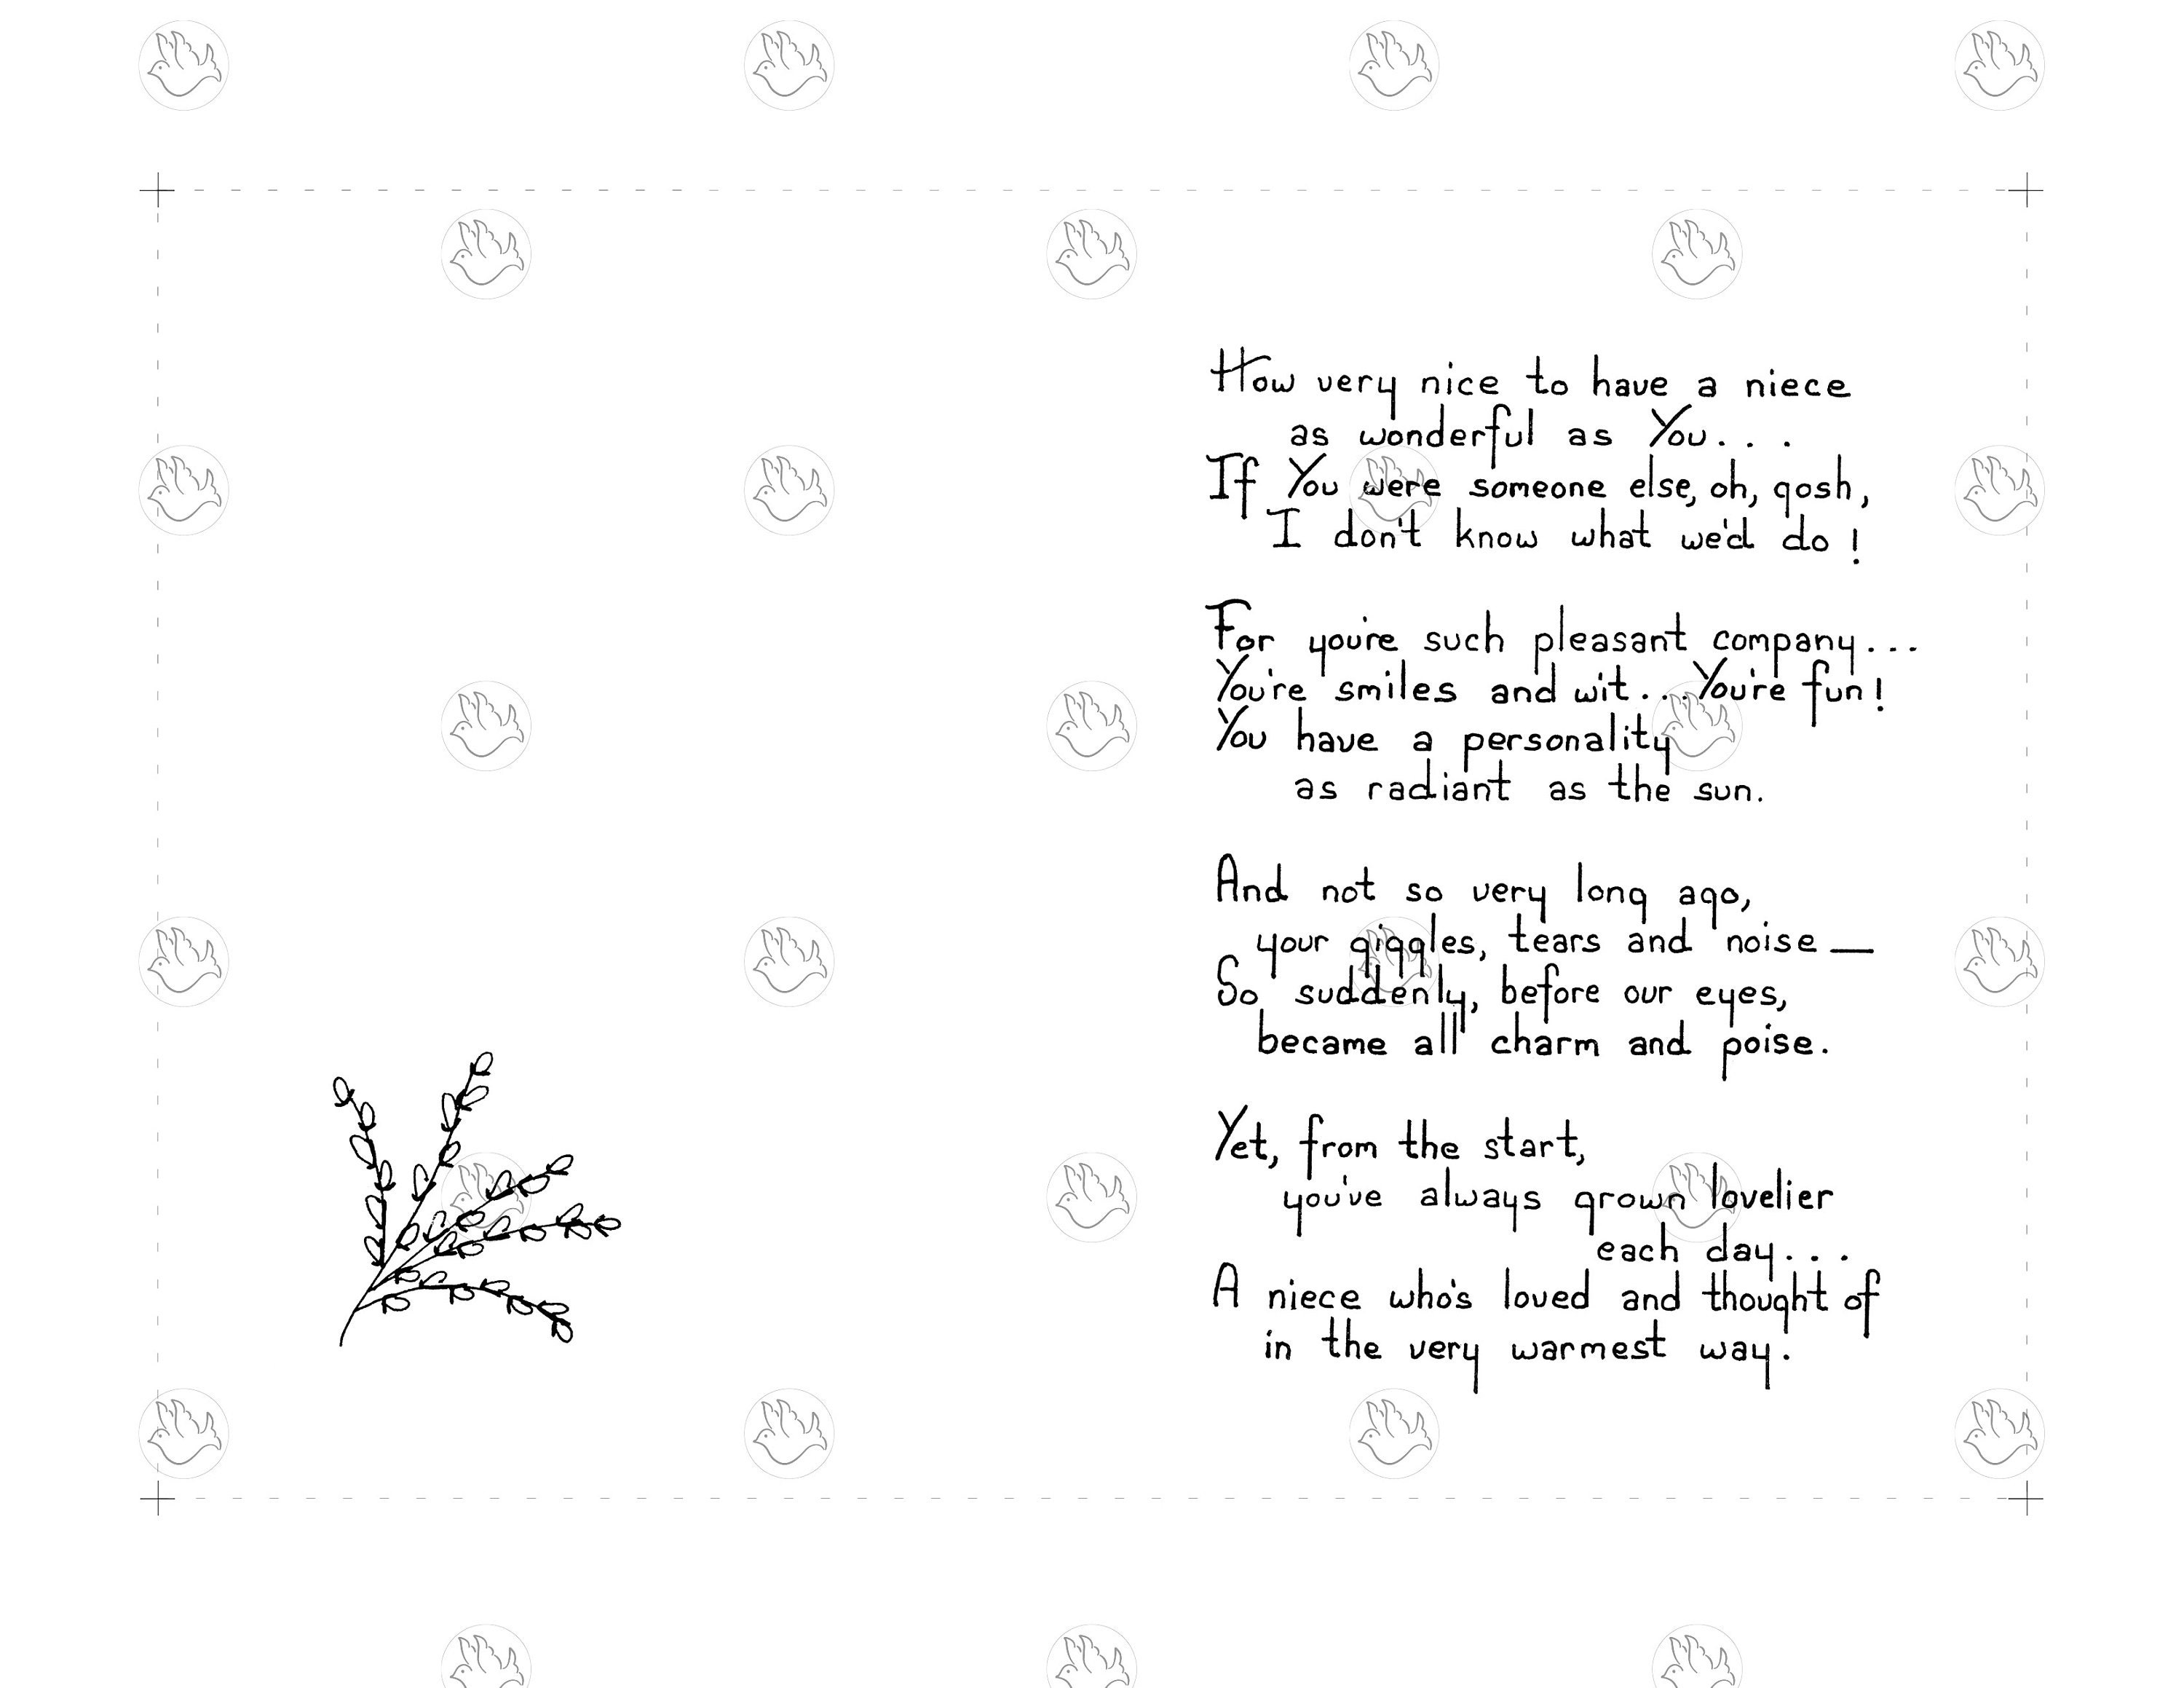 How very nice to have a niece
as wonderful as You...
If You were someone else, oh, gosh,
I don't know what we'd do!
For you're such pleasant company...
You're smiles and wit... You're fun!
You have a personality
as radiant as the sun.
And not so very long ago,
your giggles, tears and noise—
So suddenly, before our eyes,
became all charm and poise.
Yet, from the start,
you've always grown lovelier
each day...
A niece who's loved and thought of
in the very warmest way.